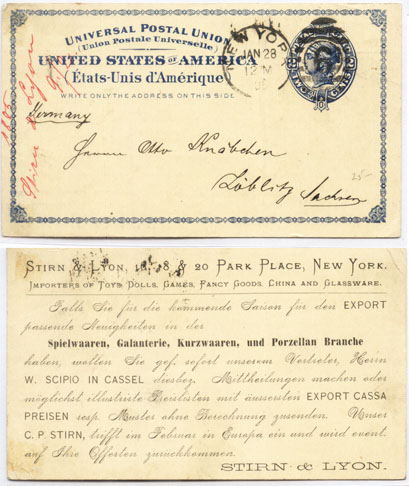 UNIVERSAL POSTAL UNION
(Union Postale Universelle)
UNITED STATES OF AMERICA
(États-Unis d'Amérique)
WRITE ONLY THE ADDRESS ON THIS SIDE
NEW YORK
JAN 28
12 M
TWO CENTS
Germany
Herrn Otto Knäbchen
Löblitz
Sachsen
25-
1885
Stirn & Lyon
STIRN & LYON, 16, 18 & 20 PARK PLACE, NEW YORK.
IMPORTERS OF TOYS, DOLLS, GAMES, FANCY GOODS, CHINA AND GLASSWARE.
Falls Sie für die kommende Saison für den EXPORT
passende Neuigkeiten in der
Spielwaaren, Galanterie, Kurzwaaren, und Porzellan Branche
haben, wollen Sie gef. sofort unserem Vertreter, Herrn
W. SCIPIO IN CASSEL diesbez. Mittheilungen machen oder
möglichst illustrirte Preislisten mit äussersten EXPORT CASSA
PREISEN resp. Muster ohne Berechnung zusenden. Unser
C. P. STIRN, trifft im Februar in Europa ein und wird event.
auf Ihre Offerten zurückkommen.
STIRN & LYON.